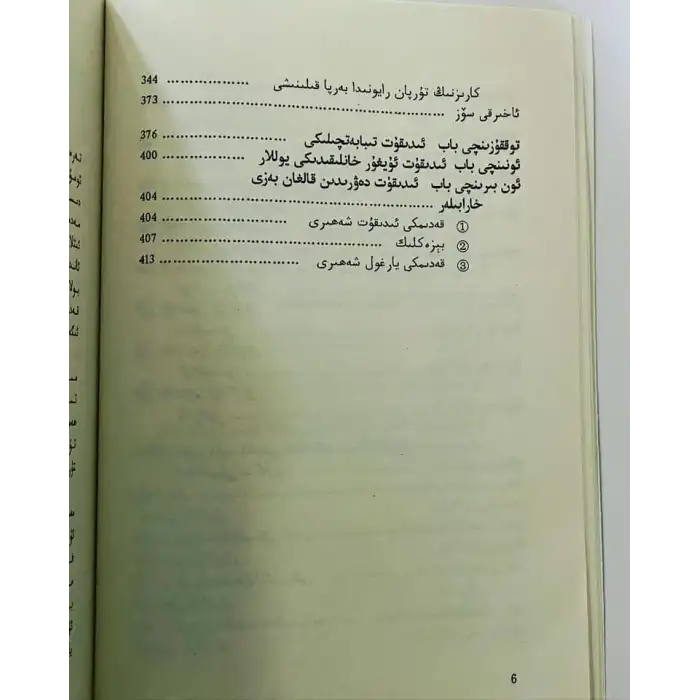 كارىزنىڭ تۇرپان رايونىدا بەرپا قىلىنىشى ................... 344
ئاخىرقى سۆز ................................................ 373
توققۇزىنچى باب ئىدىقۇت تىبابەتچىلىكى .......................... 376
ئونىنچى باب ئىدىقۇت ئۇيغۇر خانلىقىدىكى يوللار ................ 400
ئون بىرىنچى باب ئىدىقۇت دەۋرىدىن قالغان بەزى
خارابىلەر .................................................. 404
① قەدىمكى ئىدىقۇت شەھىرى ........................... 404
② بېزەكلىك ............................................ 407
③ قەدىمكى يارغول شەھىرى ............................. 413
6